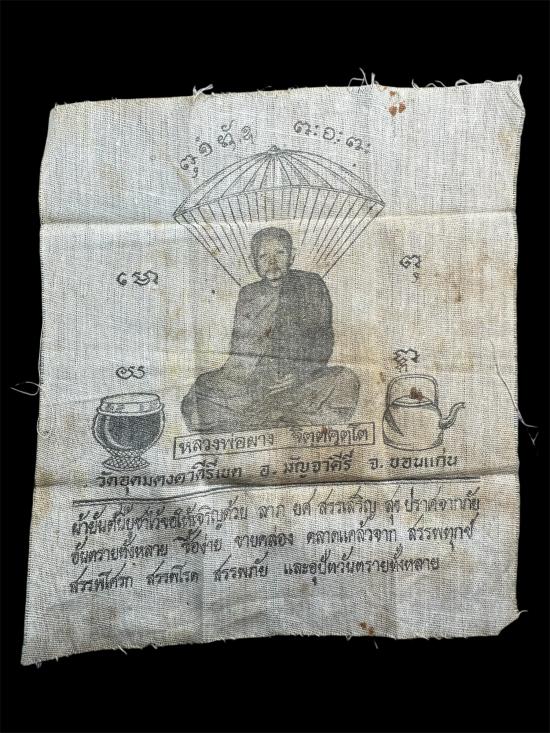 หลวงพ่อผาง จิตตคุตโต
วัดอุดมคงคาคีรีเขต อ.มัญจาคีรี จ.ขอนแก่น
ผ้ายันต์นี้บูชาไว้จะให้เจริญด้วย ลาภ ยศ สรรเสริญ สุข ปราศจากภัย
อันตรายทั้งหลาย ซื้อง่าย ขายคล่อง คลาดแคล้วจาก สรรพทุกข์
สรรพโศรก สรรพโรค สรรพภัย และอุปัตวันตรายทั้งหลาย